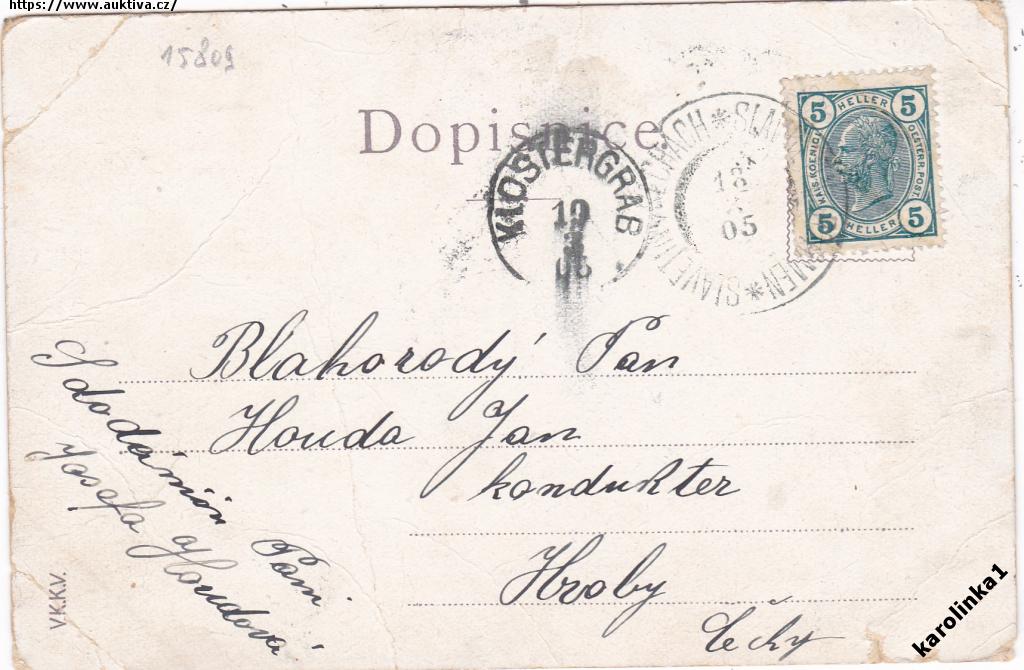 https://www.auktiva.cz/
15809
Dopisnice.
KLOSTERGRAB
19
05
SLAVĚTÍN
18
05
5 HELLER 5
KAIS. KOENIG. OESTERR. POST.
5 HELLER 5
Blahorodý Pan
Houda Jan
kondukter
Hroby
Čechy
S dodáním Paní
Josefa Houdová
V.K.K.V.
karolinka1